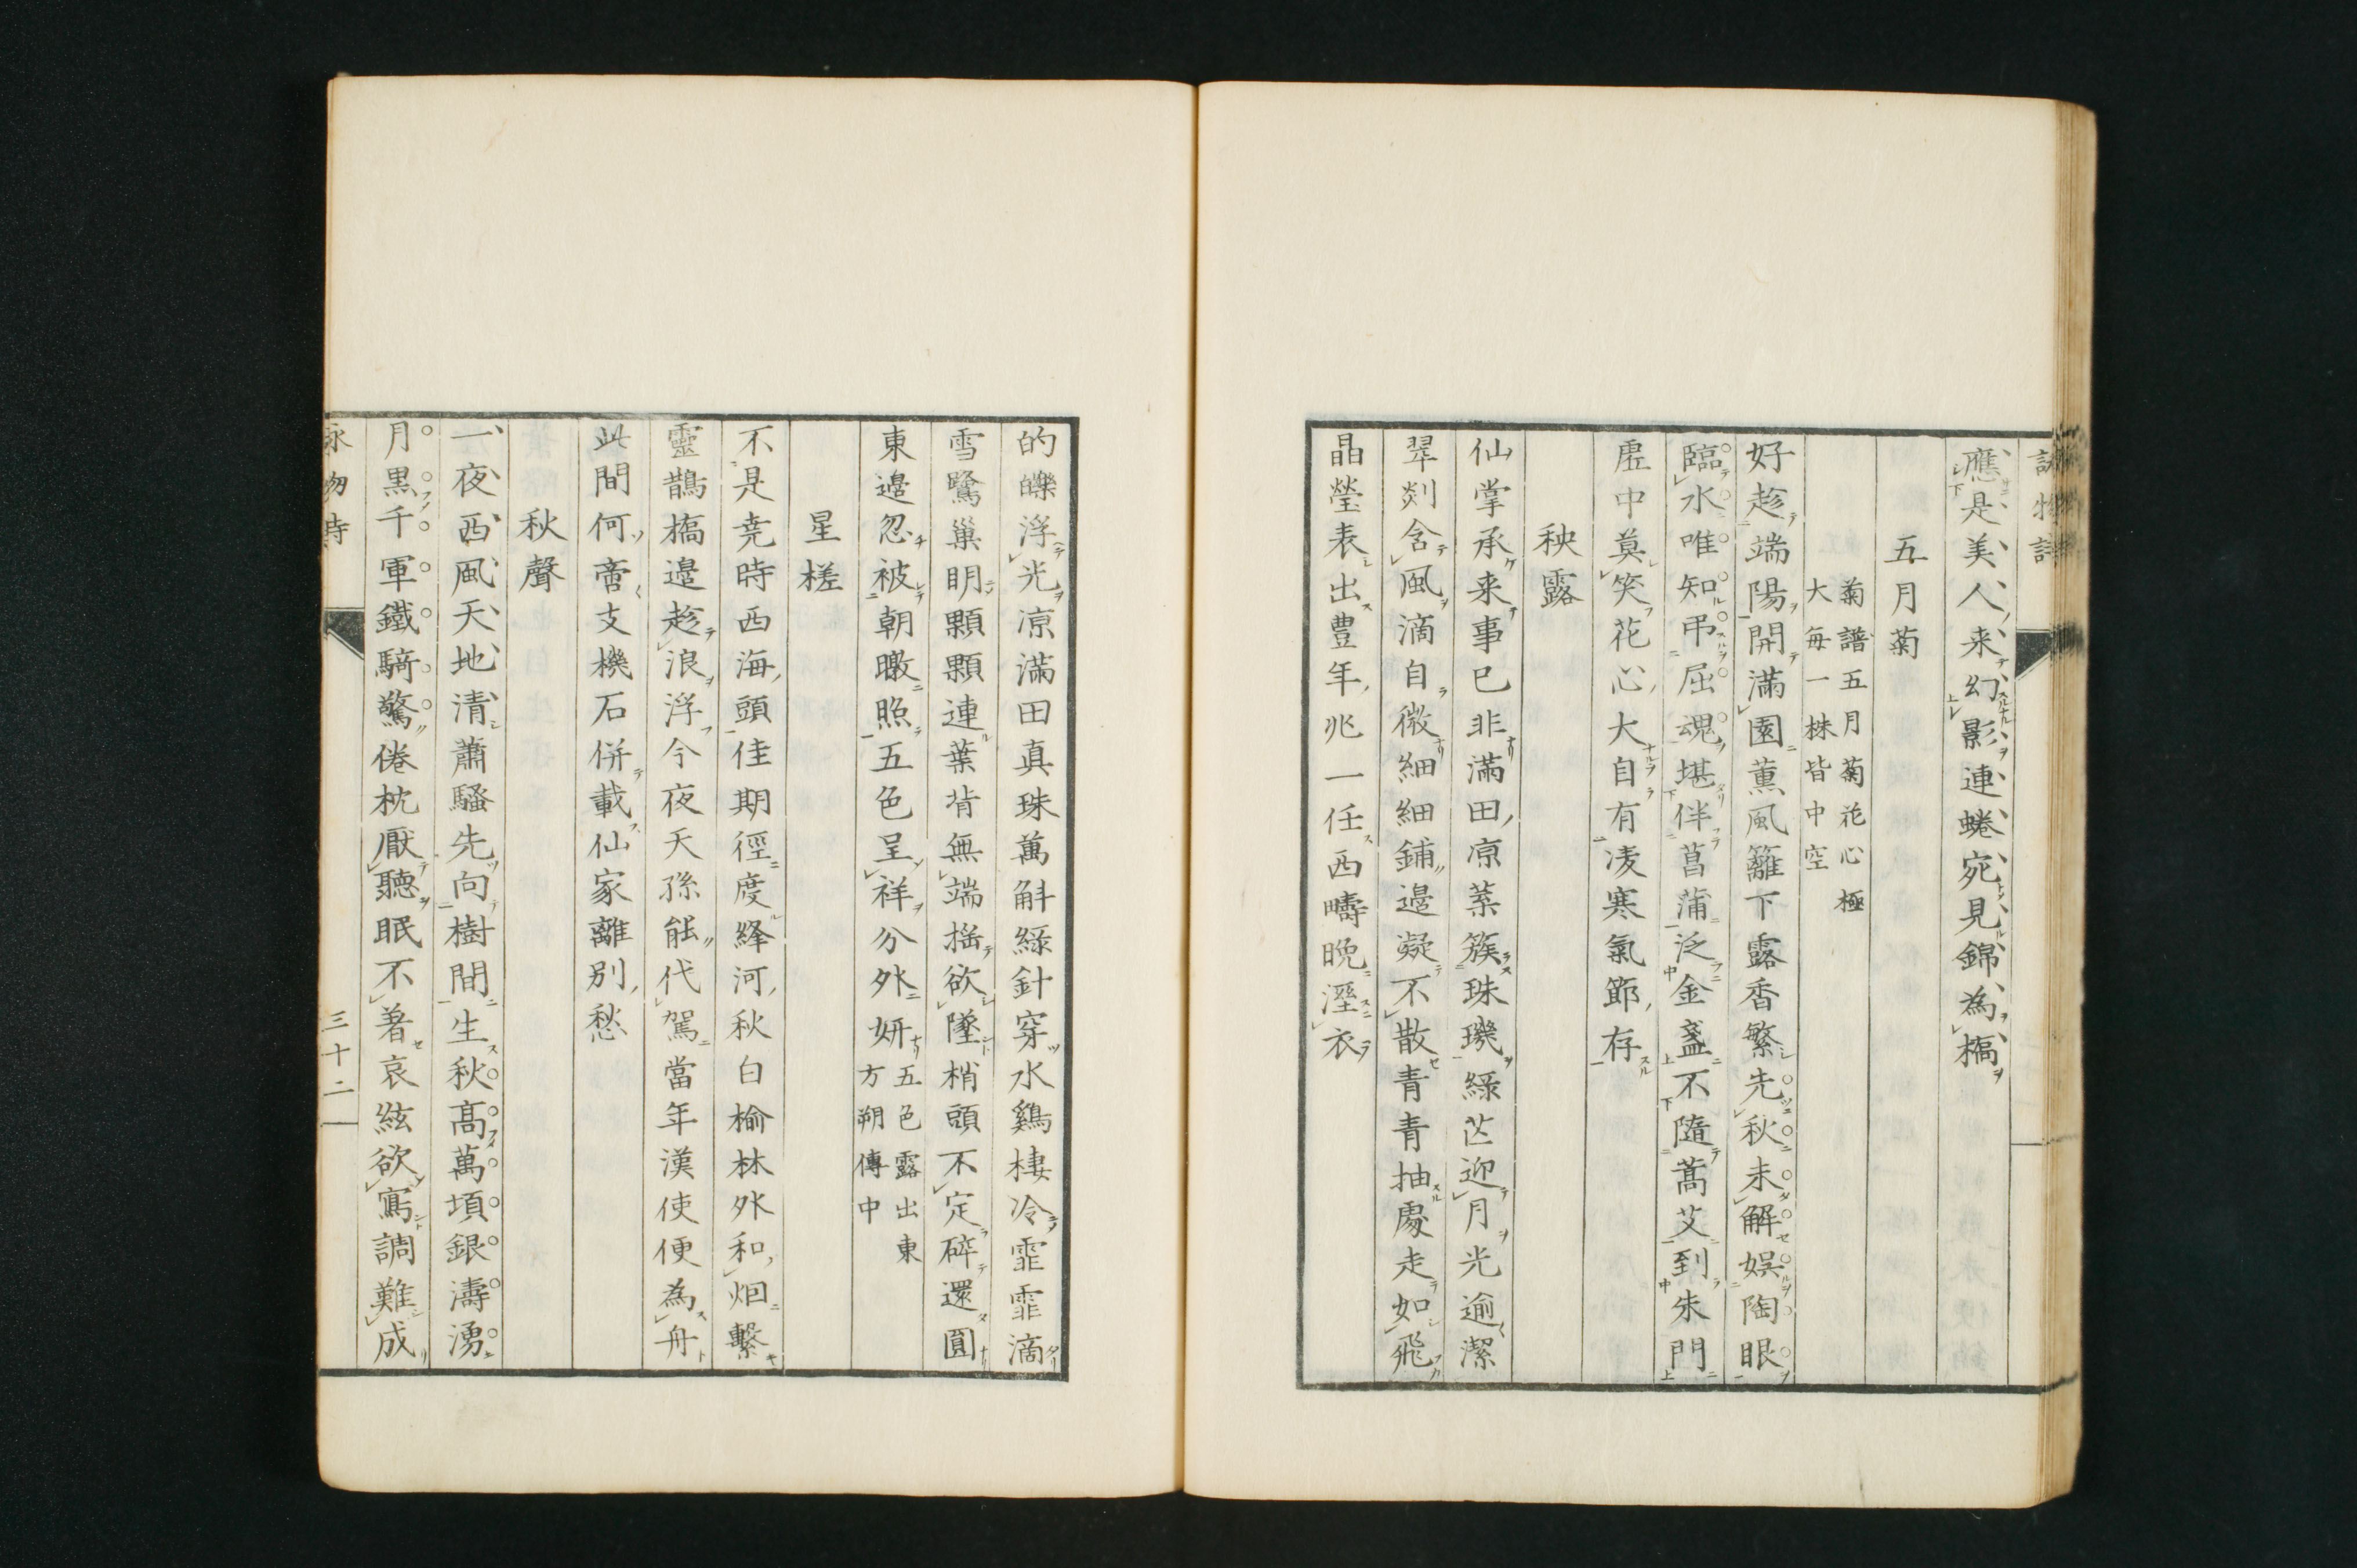 詠物詩
應是美人来幻影連蜷宛見錦為橋
五月菊
菊譜五月菊花心極
大每一株皆中空
好趁端陽開滿園薫風籬下露香繁先秋未解娯陶眼
臨水唯知弔屈魂堪伴菖蒲泛金盞不隨蒿艾到朱門
虚中莫笑花心大自有凌寒氣節存
秧露
仙掌承来事已非滿田凉葉簇珠璣緑芒迎月光逾潔
翠剡含風滴自微細細鋪邉凝不散青青抽處走如飛
晶瑩表出豊年兆一任西疇晩溼衣
的皪浮光凉滿田真珠萬斛緑針穿水鷄棲冷霏霏滴
雪鷺巢明顆顆連葉背無端揺欲墜梢頭不定碎還圓
東邉忽被朝暾照五色呈祥分外妍
五色露出東
方朔傳中
星槎
不是尭時西海頭佳期徑度絳河秋白榆林外和烟繫
靈鵲橋邉趁浪浮今夜天孫能代駕當年漢使便為舟
此間何啻支機石併載仙家離別愁
秋聲
一夜西風天地清蕭騷先向樹間生秋高萬頃銀濤湧
月黒千軍鐵騎驚倦枕厭聽眠不着哀絃欲寫調難成
詠物詩
三十二